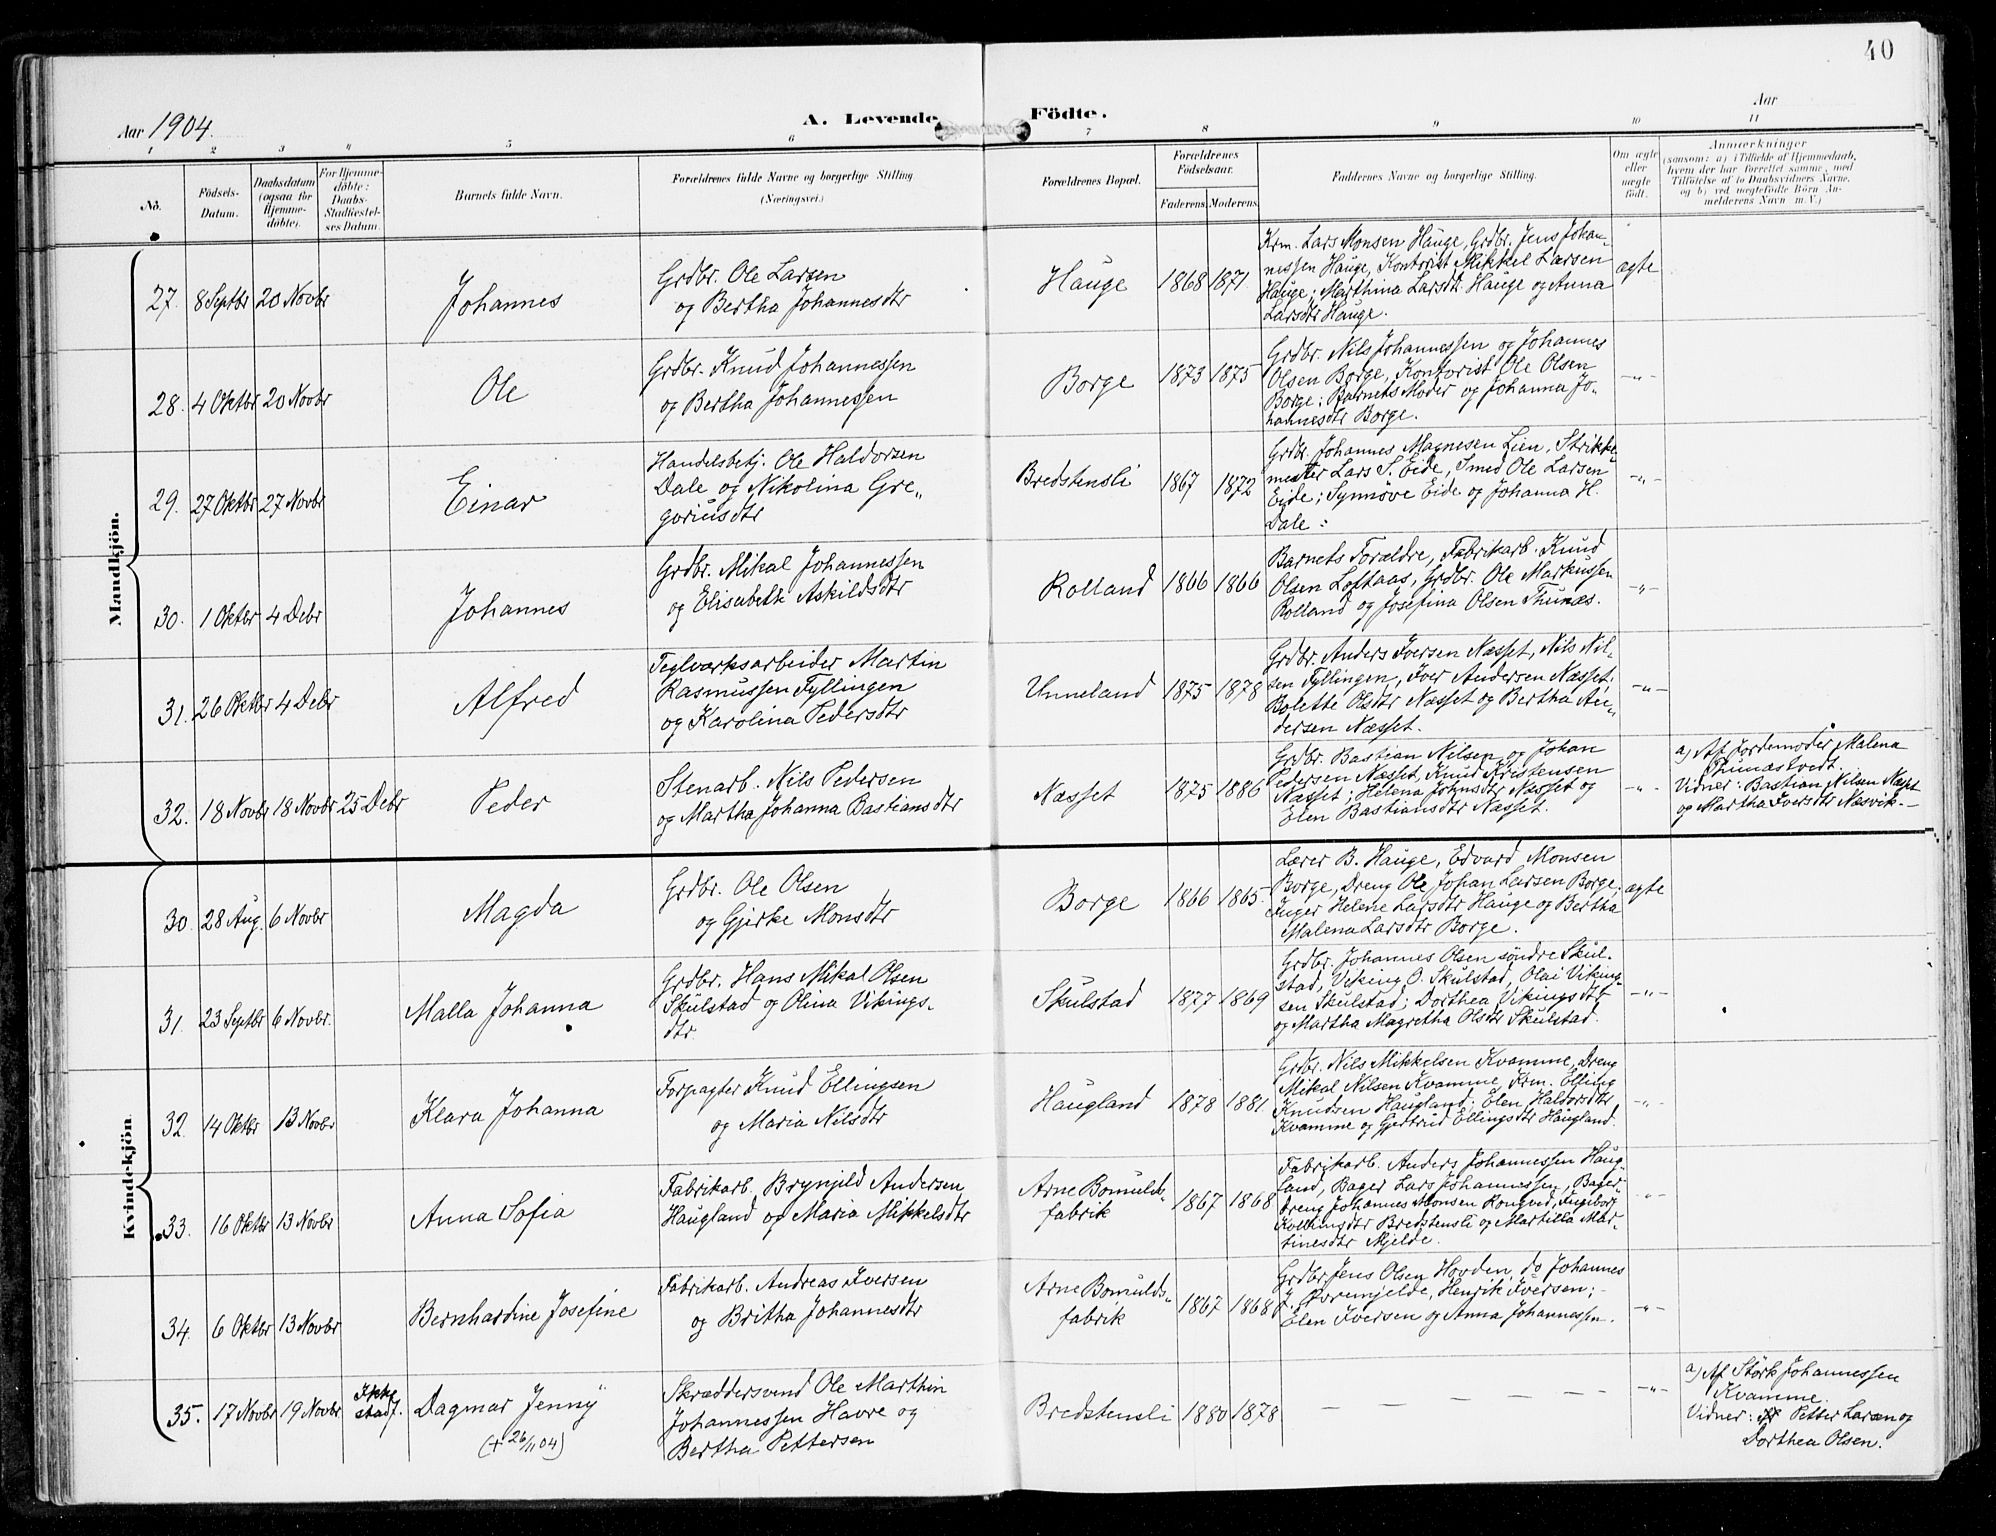 40
Aar 1904.
A. Levende Födte.
Aar
1 2 3 4 5 6 7 8 9 10 11
No.
Födsels-
Datum.
Daabsdatum
(ogsaa for
Hjemme-
døbte).
For Hjemme-
døbte:
Daabs-
Stadfæstel-
ses Datum.
Barnets fulde Navn.
Forældrenes fulde Navne og borgerlige Stilling
(Næringsvei.)
Forældrenes Bopæl.
Forældrenes
Födselsaar.
Faderens. Moderens.
Faddernes Navne og borgerlige Stilling.
Om ægte
eller
uægte
født.
Anmærkninger
(saasom: a) i Tilfælde af Hjemmedaab,
hvem der har forrettet samme, med
Tilføielse af to Daabsvidners Navne,
og b) ved uægtefødte Børn An-
melderens Navn m. V.)
Mandkjön.
27. 8 Septbr 20 Novbr
Johannes
Grdbr. Ole Larsen
og Bertha Johannesdtr
Hauge 1868 1871
Krm. Lars Monsen Hauge, Grdbr. Jens Johan-
nessen Hauge, Kontorist Mikkel Larsen
Hauge; Marthina Larsdtr Hauge og Anna
Larsdtr Hauge.
ægte
28. 4 Oktbr 20 Novbr
Ole
Grdbr. Knud Johannessen
og Bertha Johannessen
Borge 1873 1875
Grdbr. Nils Johannessen og Johannes
Olsen Borge, Kontorist Ole Olsen
Borge; Barnets Moder og Johanna Jo-
hannesdtr Borge.
-"-
29. 27 Oktbr 27 Novbr
Einar
Handelsbetj. Ole Haldorsen
Dale og Nikolina Gre-
goriusdtr
Bredstensli 1867 1872
Grdbr. Johannes Magnesen Lien, Strikke-
mester Lars S. Eide, Smed Ole Larsen
Eide; Synnöve Eide og Johanna H.
Dale:
-"-
30. 1 Oktbr 4 Debr
Johannes
Grdbr. Mikal Johannessen
og Elisabeth Askildsdtr
Rolland 1866 1866
Barnets Forældre, Fabrikarb. Knud
Olsen Loftaas, Grdbr. Ole Markussen
Rolland og Josefina Olsen Thunæs.
-"-
31. 26 Oktbr 4 Debr
Alfred
Teglværksarbeider Martin
Rasmussen Fyllingen
og Karolina Pedersdtr
Unneland 1875 1878
Grdbr. Anders Iversen Næsset, Nils Nil-
sen Fyllingen, Iver Andersen Næsset;
Bolette Olsdtr Næsset og Bertha An-
dersen Næsset.
-"-
32. 18 Novbr 18 Novbr 25 Debr
Peder
Stenarb. Nils Pedersen
og Martha Johanna Bastiansdtr
Næsset 1875 1886
Grdbr. Bastian Nilsen og Johan
Pedersen Næsset, Knud Kristensen
Næsset; Helena Johnsdtr Næsset og
Elen Bastiansdtr Næsset.
-"-
a) Af Jordemoder Malena
Thunæstvedt.
Vidner: Bastian Nilsen Næsset
og Martha Iversdtr Næsvik. -
Kvindekjön
30. 28 Aug. 6 Novbr
Magda
Grdbr. Ole Olsen
og Gjerke Monsdtr
Borge 1866 1865
Lærer B. Hauge, Edvard Monsen
Borge, Dreng Ole Johan Larsen Borge;
Inger Helene Larsdtr Hauge og Bertha
Malena Larsdtr Borge.
ægte
31. 23 Septbr 6 Novbr.
Malla Johanna
Grdbr. Hans Mikal Olsen
Skulstad og Olina Vikings-
dtr.
Skulstad 1877 1869
Grdbr. Johannes Olsen søndre Skul-
stad, Viking O. Skulstad, Olai Viking-
sen Skulstad; Dorthea Vikingsdtr
og Martha Magretha Olsdtr Skulstad.
-"-
32. 14 Oktbr 13 Novbr
Klara Johanna
Forpagter Knud Ellingsen
og Maria Nilsdtr
Haugland 1878 1881
Grdbr. Nils Mikkelsen Kvamme, Dreng
Mikal Nilsen Kvamme, Krm. Elling
Knudsen Haugland; Elen Haldorsdtr
Kvamme og Gjertrud Ellingsdtr Haugland.
-"-
33. 16 Oktbr 13 Novbr
Anna Sofia
Fabrikarb. Brynjeld Andersen
Haugland og Maria Mikkelsdtr
Arne Bomulds-
fabrik 1867 1868
Fabrikarb. Anders Johannessen Haug-
land, Bager Lars Johannessen, Bager-
dreng Johannes Monsen Rongved, Ingeborg
Kolbensdtr Bredstensli og Martilla Mar-
tinesdtr Mjelde.
-"-
34. 6 Oktbr 13 Novbr
Bernhardine Josefine
Fabrikarb. Andreas Iversen
og Britha Johannesdtr
Arne Bomulds-
fabrik 1867 1868
Grdbr. Jens Olsen Hovden, do Johannes
J. Øvremjelde, Henrik Iversen; -
Elen Iversen og Anna Johannessen.
-"-
35. 17 Novbr 19 Novbr Ikke
stadf.
Dagmar Jenny
(+ 26/11 04)
Skræddersvend Ole Marthin
Johannessen Havre og
Bertha Pettersen
Bredstensli 1880 1878
- - - - -
-"-
a) Af Störk Johannessen
Kvamme.
Vidner: Petter Larsen og
Dorthea Olsen.